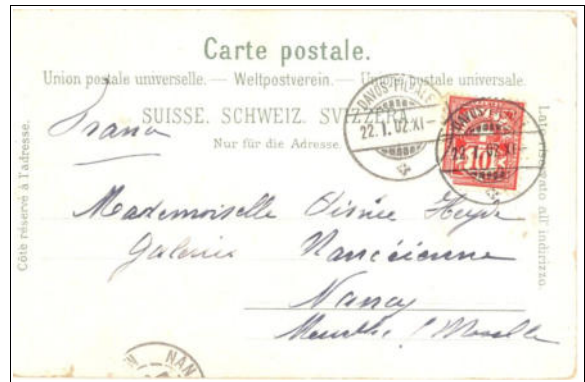 Carte postale.
Union postale universelle. — Weltpostverein. — Unione postale universale.
SUISSE. SCHWEIZ. SVIZZERA.
Nur für die Adresse.
Côté réservé à l'adresse.
Lato riservato all' indirizzo.
DAVOS-FILIALE
22.1.02.XI-
DAVOS-
22.1.02.XI-
10
France
Mademoiselle Heyde
Galerie Nancéienne
Nancy
Meurthe & Moselle
NAN